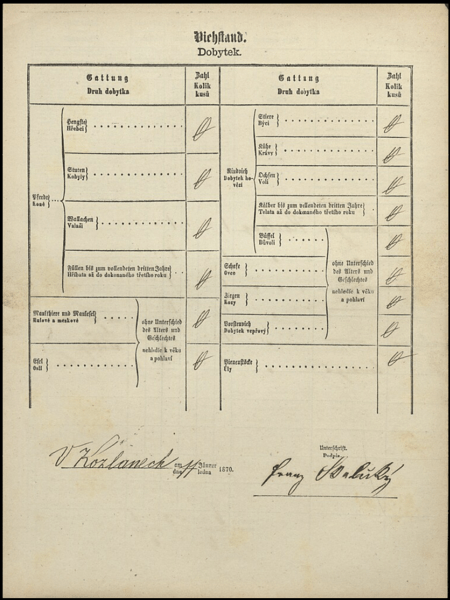 Viehstand.
Dobytek.
Gattung
Druh dobytka
Zahl
Kolik
kusů
Gattung
Druh dobytka
Zahl
Kolik
kusů
Pferde
Koně
Hengste
Hřebci
Stuten
Kobyly
Wallachen
Valaši
Füllen bis zum vollendeten dritten Jahre
Hříbata až do dokonaného třetího roku
Maulthiere und Maulesel
Mulové a mezkové
Esel
Osli
ohne Unterschied
des Alters und
Geschlechtes
nehledíc k věku
a pohlaví
Rindvieh
Dobytek ho-
vězí
Stiere
Býci
Kühe
Krávy
Ochsen
Voli
Kälber bis zum vollendeten dritten Jahre
Telata až do dokonaného třetího roku
Büffel
Bůvoli
Schafe
Ovce
Ziegen
Kozy
Borstenvieh
Dobytek vepřový
ohne Unterschied
des Alters und
Geschlechtes
nehledíc k věku
a pohlaví
Bienenstöcke
Úly
V Kozlanech am 11 Jänner 1870.
dne ledna
Unterschrift.
Podpis.
Franz Skalický